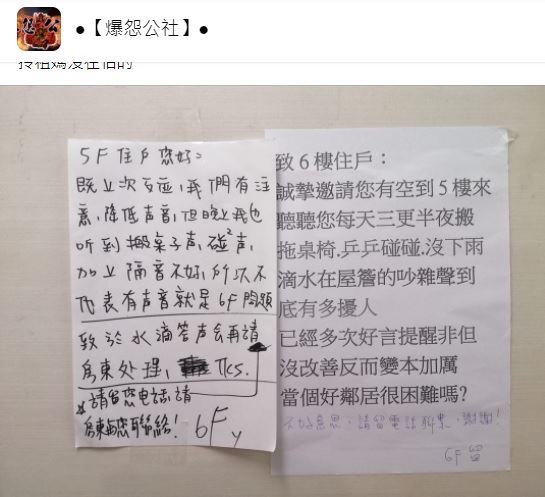 ●【爆怨公社】●
5F住戶您好:
既上次反應,我們有注
意,降低声音,但晚上我也
听到搬桌子声,碰²声,
加上隔音不好,所以不
代表有声音就是6F問題
致於水滴答声会再請
房東处理, Tks.
*請留您電話,請
房東與您聯絡! 6F
致6樓住戶：
誠摯邀請您有空到5樓來
聽聽您每天三更半夜搬
拖桌椅.乒乒碰碰.沒下雨
滴水在屋簷的吵雜聲到
底有多擾人
已經多次好言提醒非但
沒改善反而變本加厲
當個好鄰居很困難嗎?
不好意思,請留電話聊聊,謝謝!
6F 留